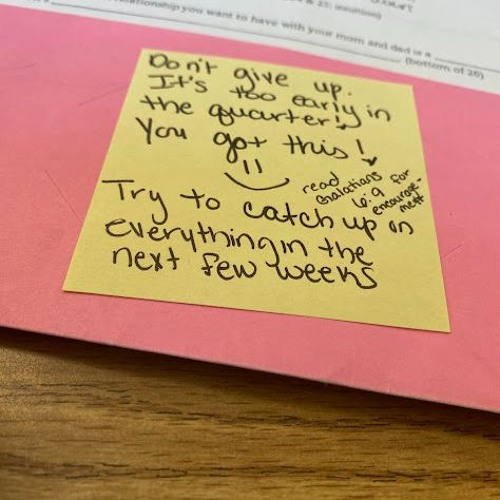 & 25; intuition)
relationship you want to have with your mom and dad is a
(bottom of 26)
Don't give up.
It's too early in
the quarter!
You got this!
read
Galatians
6:9 for
encourage-
ment
Try to catch up on
everything in the
next few weeks